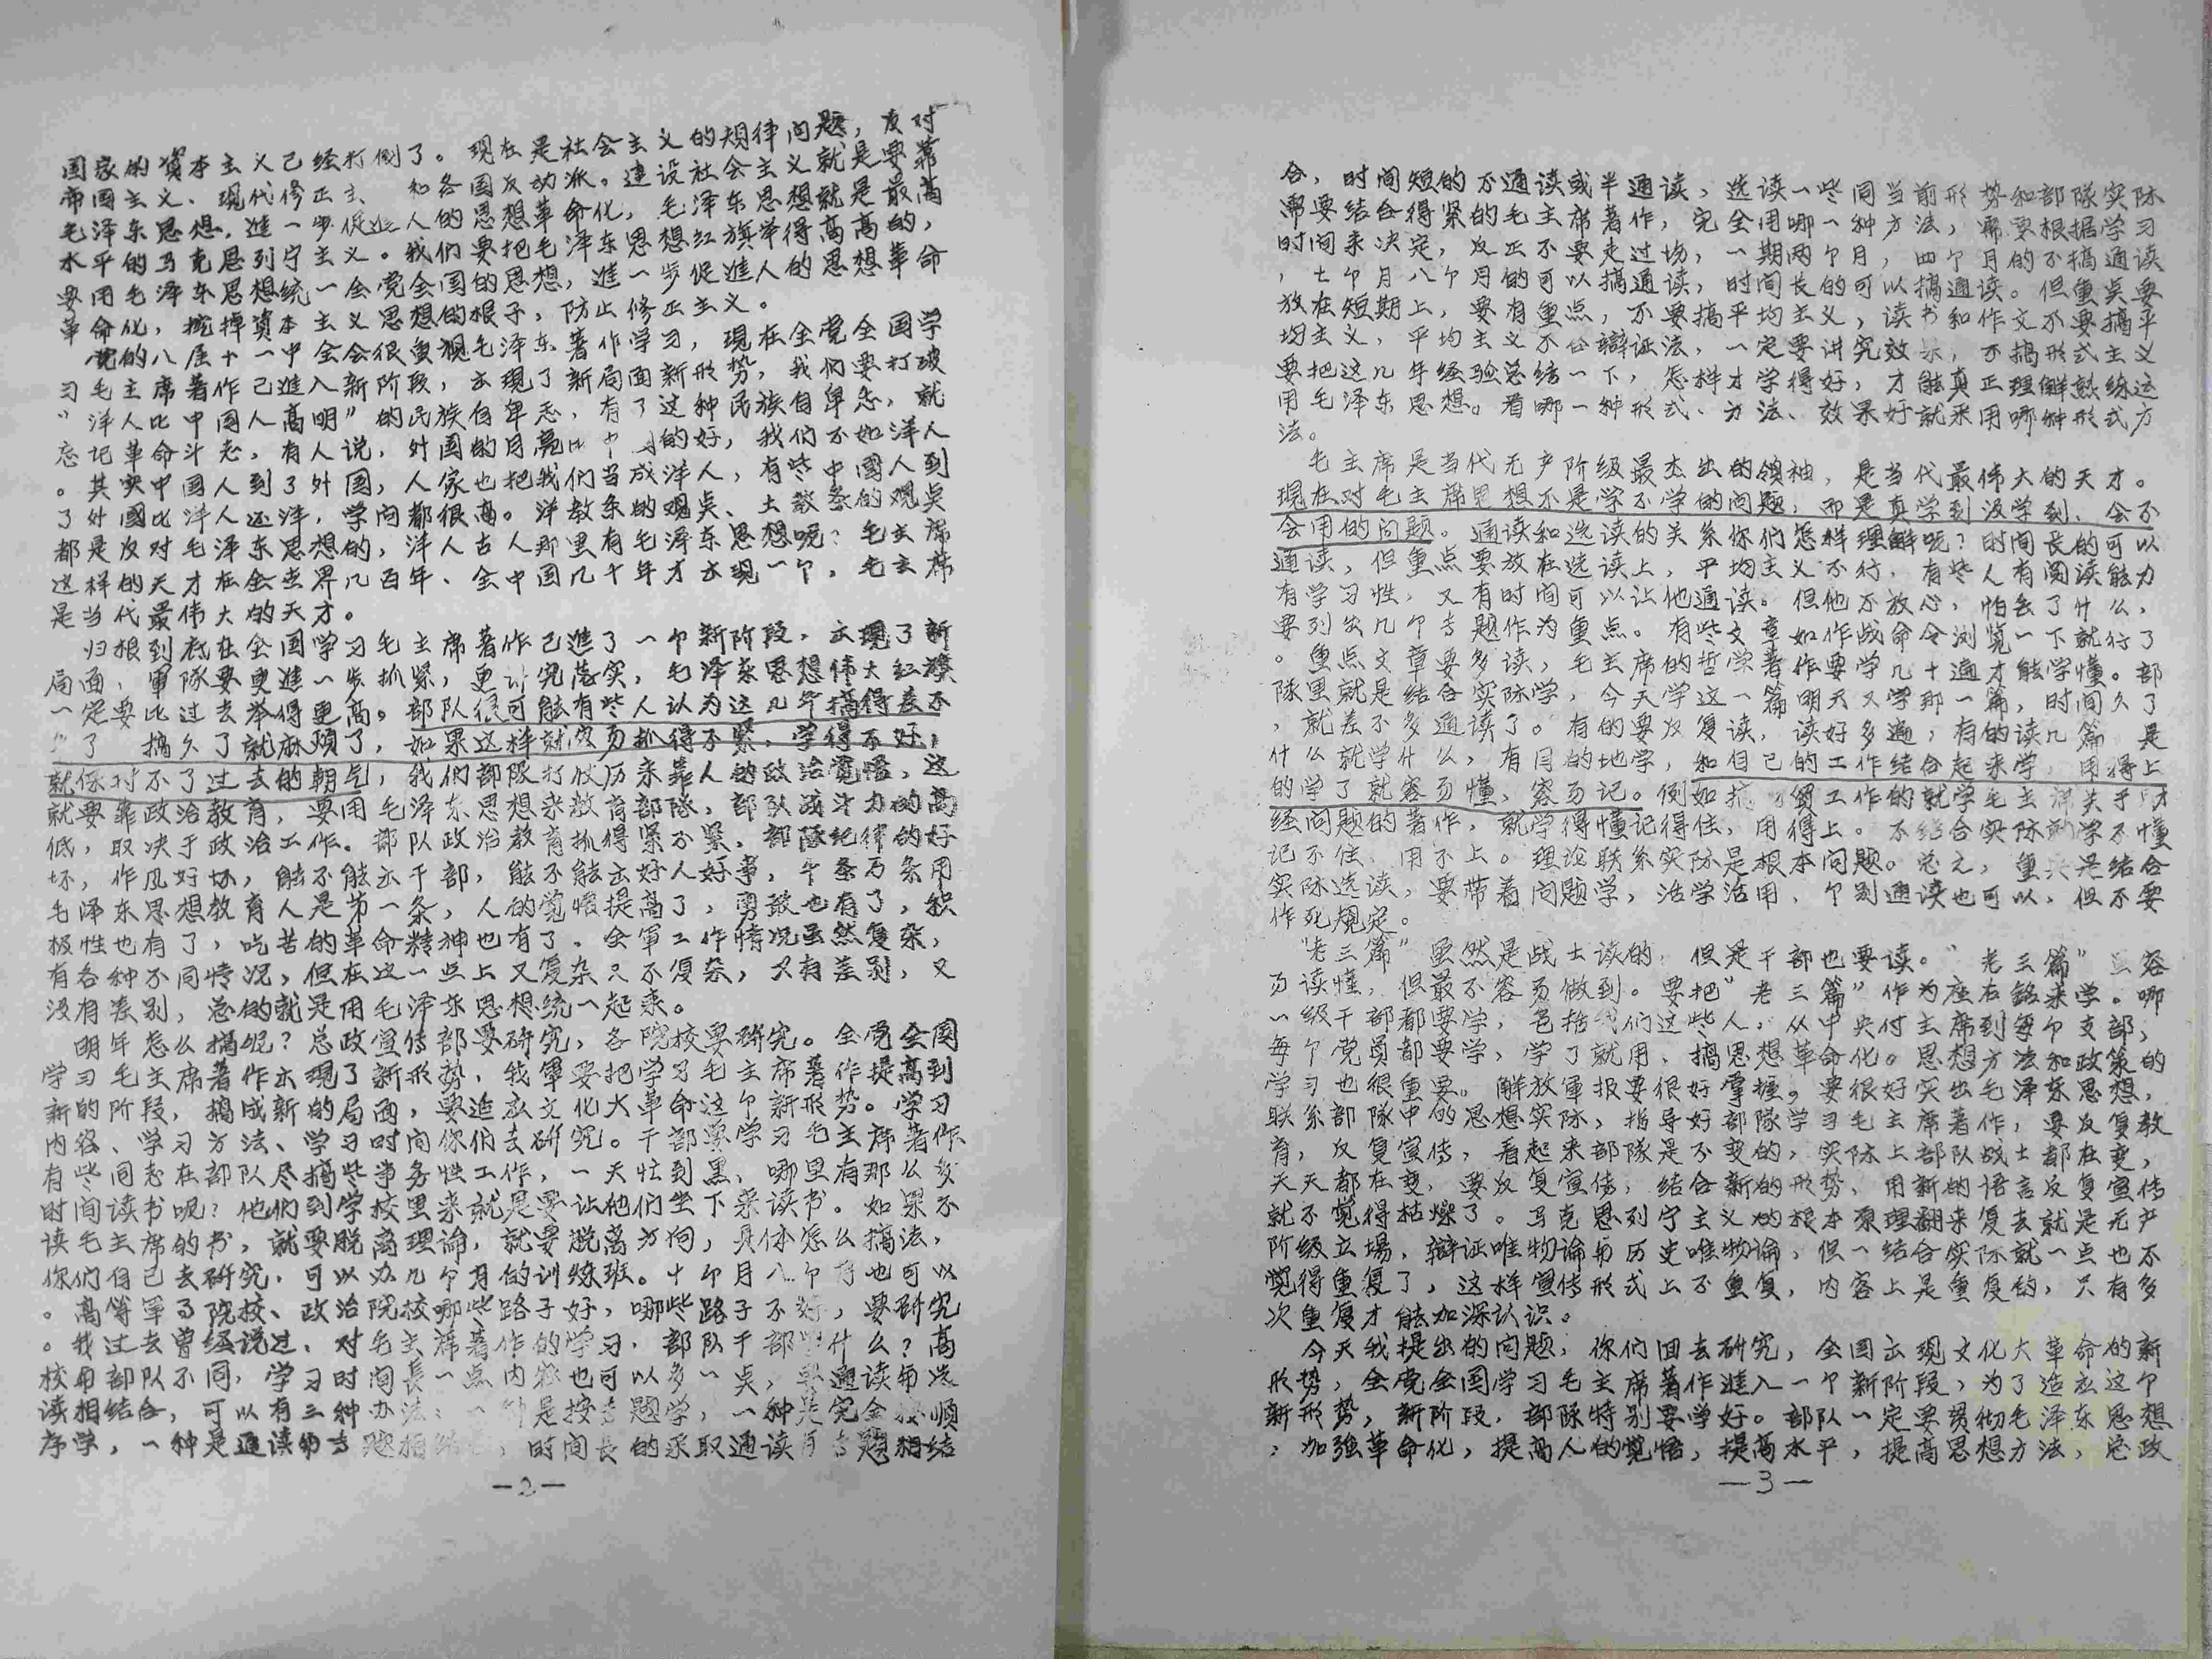 国家的資本主义已经打倒了。现在是社会主义的规律问题，反对
帝国主义、现代修正主 和各国反动派。建设社会主义就是要靠
毛泽东思想，進一步促進人的思想革命化，毛泽东思想就是最高
水平的马克思列宁主义。我们要把毛泽东思想红旗举得高高的，
要用毛泽东思想统一全党全国的思想，進一步促進人的思想革命
革命化，挖掉資本主义思想的根子，防止修正主义。
党的八届十一中全会很重視毛泽东著作学习，現在全党全国学
习毛主席著作已進入新阶段，出現了新局面新形势，我们要打破
“洋人比中国人高明”的民族自卑志，有了这种民族自卑志，就
忘记革命斗志，有人说，外国的月亮比中 的好，我们不如洋人
。其实中国人到了外国，人家也把我们当成洋人，有些中國人到
了外國比洋人还洋，学问都很高。洋教条的观点、土教条的观点
都是反对毛泽东思想的，洋人古人那里有毛泽东思想呢？毛主席
这样的天才在全世界几百年、全中国几十年才出现一个，毛主席
是当代最伟大的天才。
归根到底在全国学习毛主席著作已進了一个新阶段，出現了新
局面，軍隊要更進一步抓紧，更讲究落实，毛泽东思想伟大红旗
一定要比过去举得更高。部队很可能有些人认为这几年搞得差不
少了 搞久了就麻烦了，如果这样就容易抓得不紧，学得不好，
就保持不了过去的朝气，我们部队打仗历来靠人的政治觉悟，这
就要靠政治教育，要用毛泽东思想来教育部隊，部队战斗力的高
低，取决于政治工作。部队政治教育抓得紧不紧，部隊纪律的好
坏，作风好坏，能不能出干部，能不能出好人好事，千条万条用
毛泽东思想教育人是第一条，人的觉悟提高了，勇敢也有了，积
极性也有了，吃苦的革命精神也有了。全軍工作情况虽然复杂，
有各种不同情况，但在这一点上又复杂又不复杂，又有差别，又
没有差别，总的就是用毛泽东思想统一起来。
明年怎么搞呢？总政宣传部要研究，各院校要研究。全党全国
学习毛主席著作出現了新形势，我軍要把学习毛主席著作提高到
新的阶段，搞成新的局面，要适应文化大革命这个新形势。学习
内容、学习方法、学习时间你们去研究。干部要学习毛主席著作
有些同志在部队尽搞些事务性工作，一天忙到黑，哪里有那么多
时间读书呢？他们到学校里来就是要让他们坐下来读书。如果不
读毛主席的书，就要脱离理论，就要脱离方向，具体怎么搞法，
你们自己去研究，可以办几个月的训练班。十个月八个月也可以
。高等軍事院校、政治院校哪些路子好，哪些路子不好，要研究
。我过去曾经说过，对毛主席著作的学习，部队干部学什么？高
校和部队不同，学习时间長一点内容也可以多一点，单通读和选
读相结合，可以有三种办法：一种是按专题学，一种是完全按顺
序学，一种是通读和专题相结合，时间長的采取通读和专题相结
—2—
合，时间短的不通读或半通读，选读一些同当前形势和部隊实际
需要结合得紧的毛主席著作，完全用哪一种方法，需要根据学习
时间来决定，反正不要走过场，一期两个月，四个月的不搞通读
，七个月八个月的可以搞通读，时间长的可以搞通读。但重点要
放在短期上，要有重点，不要搞平均主义，读书和作文不要搞平
均主义，平均主义不合辩证法，一定要讲究效果，不搞形式主义
要把这几年经验总结一下，怎样才学得好，才能真正理解熟练运
用毛泽东思想。看哪一种形式、方法、效果好就采用哪种形式方
法。
毛主席是当代无产阶级最杰出的领袖，是当代最伟大的天才。
现在对毛主席思想不是学不学的问题，而是真学到没学到，会不
会用的问题。通读和选读的关系你们怎样理解呢？时间长的可以
通读，但重点要放在选读上，平均主义不行，有些人有阅读能力
有学习性，又有时间可以让他通读。但他不放心，怕丢了什么，
要列出几个专题作为重点。有些文章如作战命令浏览一下就行了
。重点文章要多读，毛主席的哲学著作要学几十遍才能学懂。部
隊里就是结合实际学，今天学这一篇明天又学那一篇，时间久了
，就差不多通读了。有的要反复读，读好多遍，有的读几篇 是
什么就学什么，有目的地学，和自己的工作结合起来学，用得上
的学了就容易懂，容易记。例如搞 贸工作的就学毛主席关于财
经问题的著作，就学得懂记得住，用得上。不结合实际就学不懂
记不住，用不上。理论联系实际是根本问题。总之，重点是结合
实际选读，要带着问题学，活学活用，个别通读也可以，但不要
作死规定。
“老三篇”虽然是战士读的，但是干部也要读。“老三篇” 容
易读懂，但最不容易做到。要把“老三篇”作为座右銘来学。哪
一级干部都要学，包括我们这些人，从中央付主席到每个支部，
每个党员都要学，学了就用，搞思想革命化。思想方法和政策的
学习也很重要。解放軍报要很好掌握。要很好突出毛泽东思想，
联系部隊中的思想实际，指导好部隊学习毛主席著作，要反复教
育，反复宣传，看起来部隊是不变的，实际上部队战士都在变，
天天都在变，要反复宣传，结合新的形势，用新的语言反复宣传
就不觉得枯燥了。马克思列宁主义的根本原理翻来复去就是无产
阶级立場，辩证唯物论和历史唯物论，但一结合实际就一点也不
觉得重复了，这样宣传形式上不重复，内容上是重复的，只有多
次重复才能加深认识。
今天我提出的问题，你们回去研究，全国出现文化大革命的新
形势，全党全国学习毛主席著作進入一个新阶段，为了适应这个
新形势，新阶段，部隊特别要学好。部队一定要贯彻毛泽东思想
，加强革命化，提高人的觉悟，提高水平，提高思想方法，总政
—3—